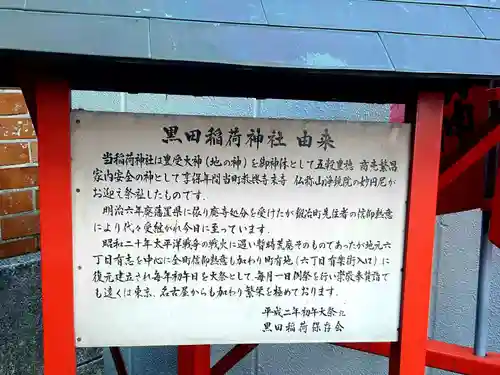 黒田稲荷神社 由来
当稲荷神社は豊受大神(地の神)を御神体として五穀豊穣 商売繁昌
家内安全の神として享保年間当町教悔寺末寺 仏弥山浄鏡院の妙円尼が
お迎え祭祀したものです。
明治六年廃藩置県に依り廃寺処分を受けたが鍛冶町先住者の信仰熱意
により代々受継がれ今日に至っています。
昭和二十年太平洋戦争の戦火に遇い暫時荒廃そのものであったが地元六
丁目有志を中心に全町信仰熱意も加わり町有地(六丁目有楽街入口)に
復元建立され毎年初午日を大祭として、毎月一日例祭を行い崇敬奉賛諸で
も遠くは東京、名古屋からも加わり繁栄を極めております。
平成二年初午大祭に
黒田稲荷保存会